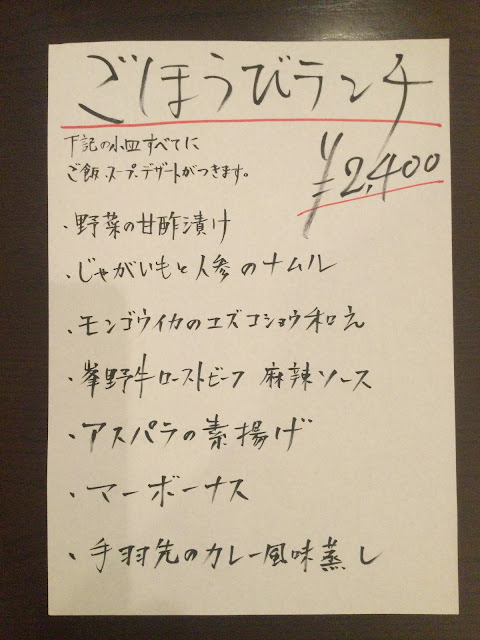 ごほうびランチ
下記の小皿すべてに
ご飯、スープ、デザートがつきます。
¥2,400
・野菜の甘酢漬け
・じゃがいもと人参のナムル
・モンゴウイカのユズコショウ和え
・峯野牛ローストビーフ 麻辣ソース
・アスパラの素揚げ
・マーボーナス
・手羽先のカレー風味蒸し